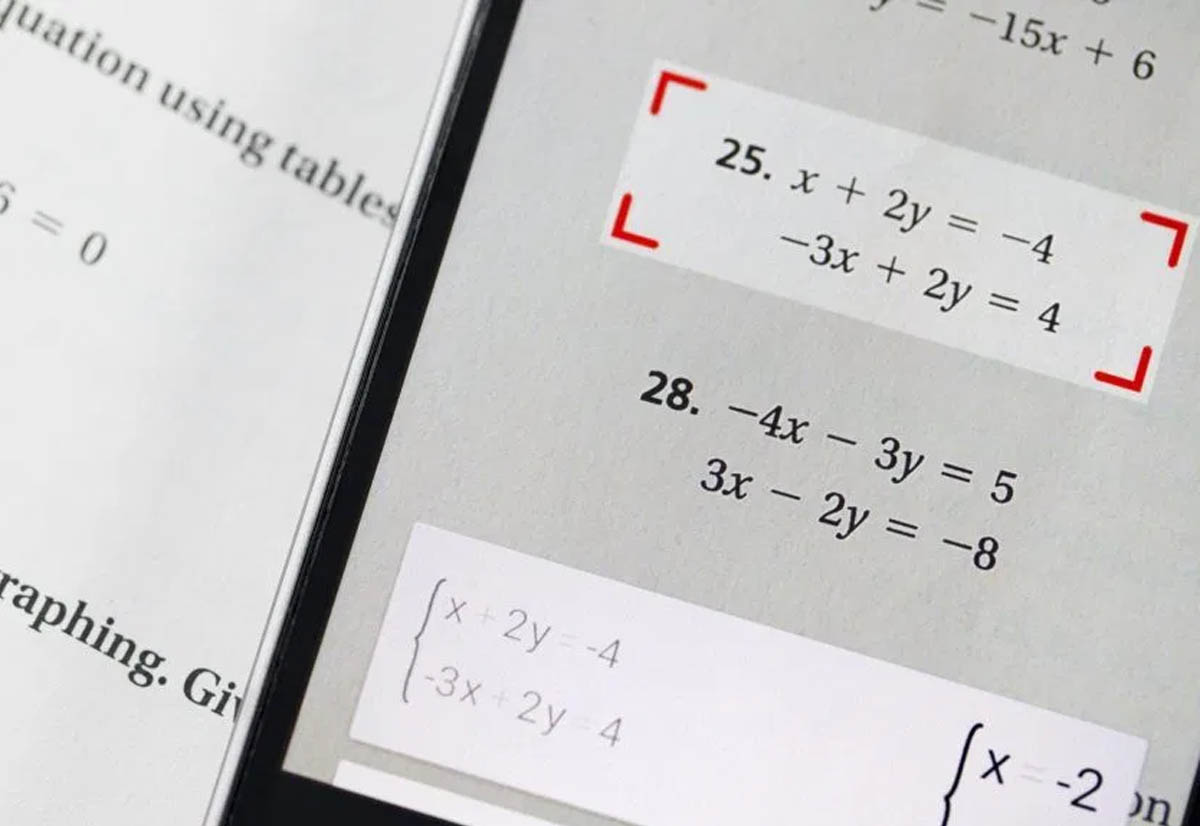 uation using tables
6 = 0
raphing. Giv
y = -15x + 6
25. x + 2y = -4
-3x + 2y = 4
28. -4x - 3y = 5
3x - 2y = -8
x + 2y = -4
-3x + 2y = 4
x = -2
on